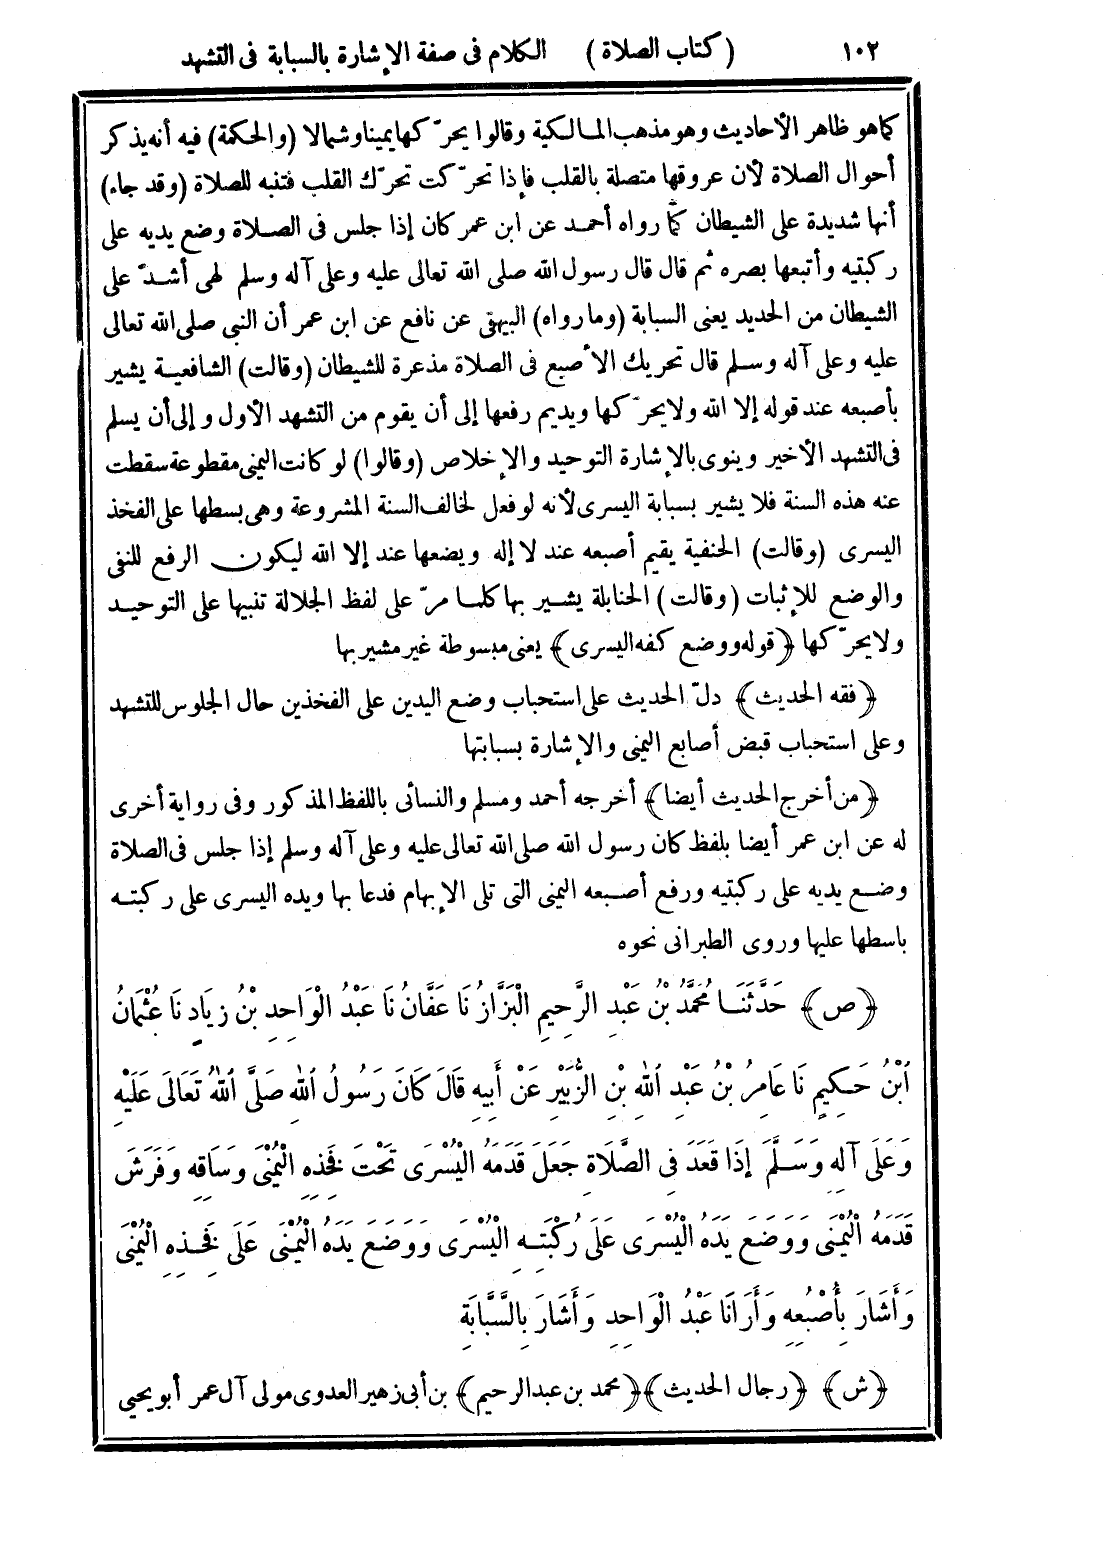 ١٠٢ (كتاب الصلاة) الكلام فى صفة الإشارة بالسبابة فى التشهد
كما هو ظاهر الأحاديث وهو مذهب المالكية وقالوا يحرّكها يمينا وشمالا (والحكمة) فيه أنه يذكر
أحوال الصلاة لأن عروقها متصلة بالقلب فإذا تحرّكت تحرّك القلب فتنبه للصلاة (وقد جاء)
أنها شديدة على الشيطان كما رواه أحمد عن ابن عمر كان إذا جلس فى الصلاة وضع يديه على
ركبتيه وأتبعها بصره ثم قال قال رسول الله صلى الله تعالى عليه وعلى آله وسلم لهى أشدّ على
الشيطان من الحديد يعنى السبابة (وما رواه) البيهقى عن نافع عن ابن عمر أن النبى صلى الله تعالى
عليه وعلى آله وسلم قال تحريك الأصبع فى الصلاة مذعرة للشيطان (وقالت) الشافعية يشير
بأصبعه عند قوله إلا الله ولا يحرّكها ويديم رفعها إلى أن يقوم من التشهد الأول وإلى أن يسلم
فى التشهد الأخير وينوى بالإشارة التوحيد والإخلاص (وقالوا) لو كانت اليمنى مقطوعة سقطت
عنه هذه السنة فلا يشير بسبابة اليسرى لأنه لو فعل لخالف السنة المشروعة وهى بسطها على الفخذ
اليسرى (وقالت) الحنفية يقيم أصبعه عند لا إله ويضعها عند إلا الله ليكون الرفع للنفى
والوضع للإثبات (وقالت) الحنابلة يشير بها كلما مرّ على لفظ الجلالة تنبيها على التوحيد
ولا يحرّكها ﴿قوله ووضع كفه اليسرى﴾ يعنى مبسوطة غير مشير بها
﴿فقه الحديث﴾ دلّ الحديث على استحباب وضع اليدين على الفخذين حال الجلوس للتشهد
وعلى استحباب قبض أصابع اليمنى والإشارة بسبابتها
﴿من أخرج الحديث أيضا﴾ أخرجه أحمد ومسلم والنسائى باللفظ المذكور وفى رواية أخرى
له عن ابن عمر أيضا بلفظ كان رسول الله صلى الله تعالى عليه وعلى آله وسلم إذا جلس فى الصلاة
وضع يديه على ركبتيه ورفع أصبعه اليمنى التى تلى الإبهام فدعا بها ويده اليسرى على ركبته
باسطها عليها وروى الطبرانى نحوه
﴿ص﴾ حَدَّثَنَا مُحَمَّدُ بْنُ عَبْدِ الرَّحِيمِ الْبَزَّازُ نَا عَفَّانُ نَا عَبْدُ الْوَاحِدِ بْنُ زِيَادٍ نَا عُثْمَانُ
ابْنُ حَكِيمٍ نَا عَامِرُ بْنُ عَبْدِ اللهِ بْنِ الزُّبَيْرِ عَنْ أَبِيهِ قَالَ كَانَ رَسُولُ اللهِ صَلَّى اللهُ تَعَالَى عَلَيْهِ
وَعَلَى آلِهِ وَسَلَّمَ إِذَا قَعَدَ فِى الصَّلَاةِ جَعَلَ قَدَمَهُ الْيُسْرَى تَحْتَ فَخِذِهِ الْيُمْنَى وَسَاقِهِ وَفَرَشَ
قَدَمَهُ الْيُمْنَى وَوَضَعَ يَدَهُ الْيُسْرَى عَلَى رُكْبَتِهِ الْيُسْرَى وَوَضَعَ يَدَهُ الْيُمْنَى عَلَى فَخِذِهِ الْيُمْنَى
وَأَشَارَ بِأُصْبُعِهِ وَأَرَانَا عَبْدُ الْوَاحِدِ وَأَشَارَ بِالسَّبَّابَةِ
﴿ش﴾ ﴿رجال الحديث﴾ ﴿محمد بن عبد الرحيم﴾ بن أبى زهير العدوى مولى آل عمر أبو يحيى